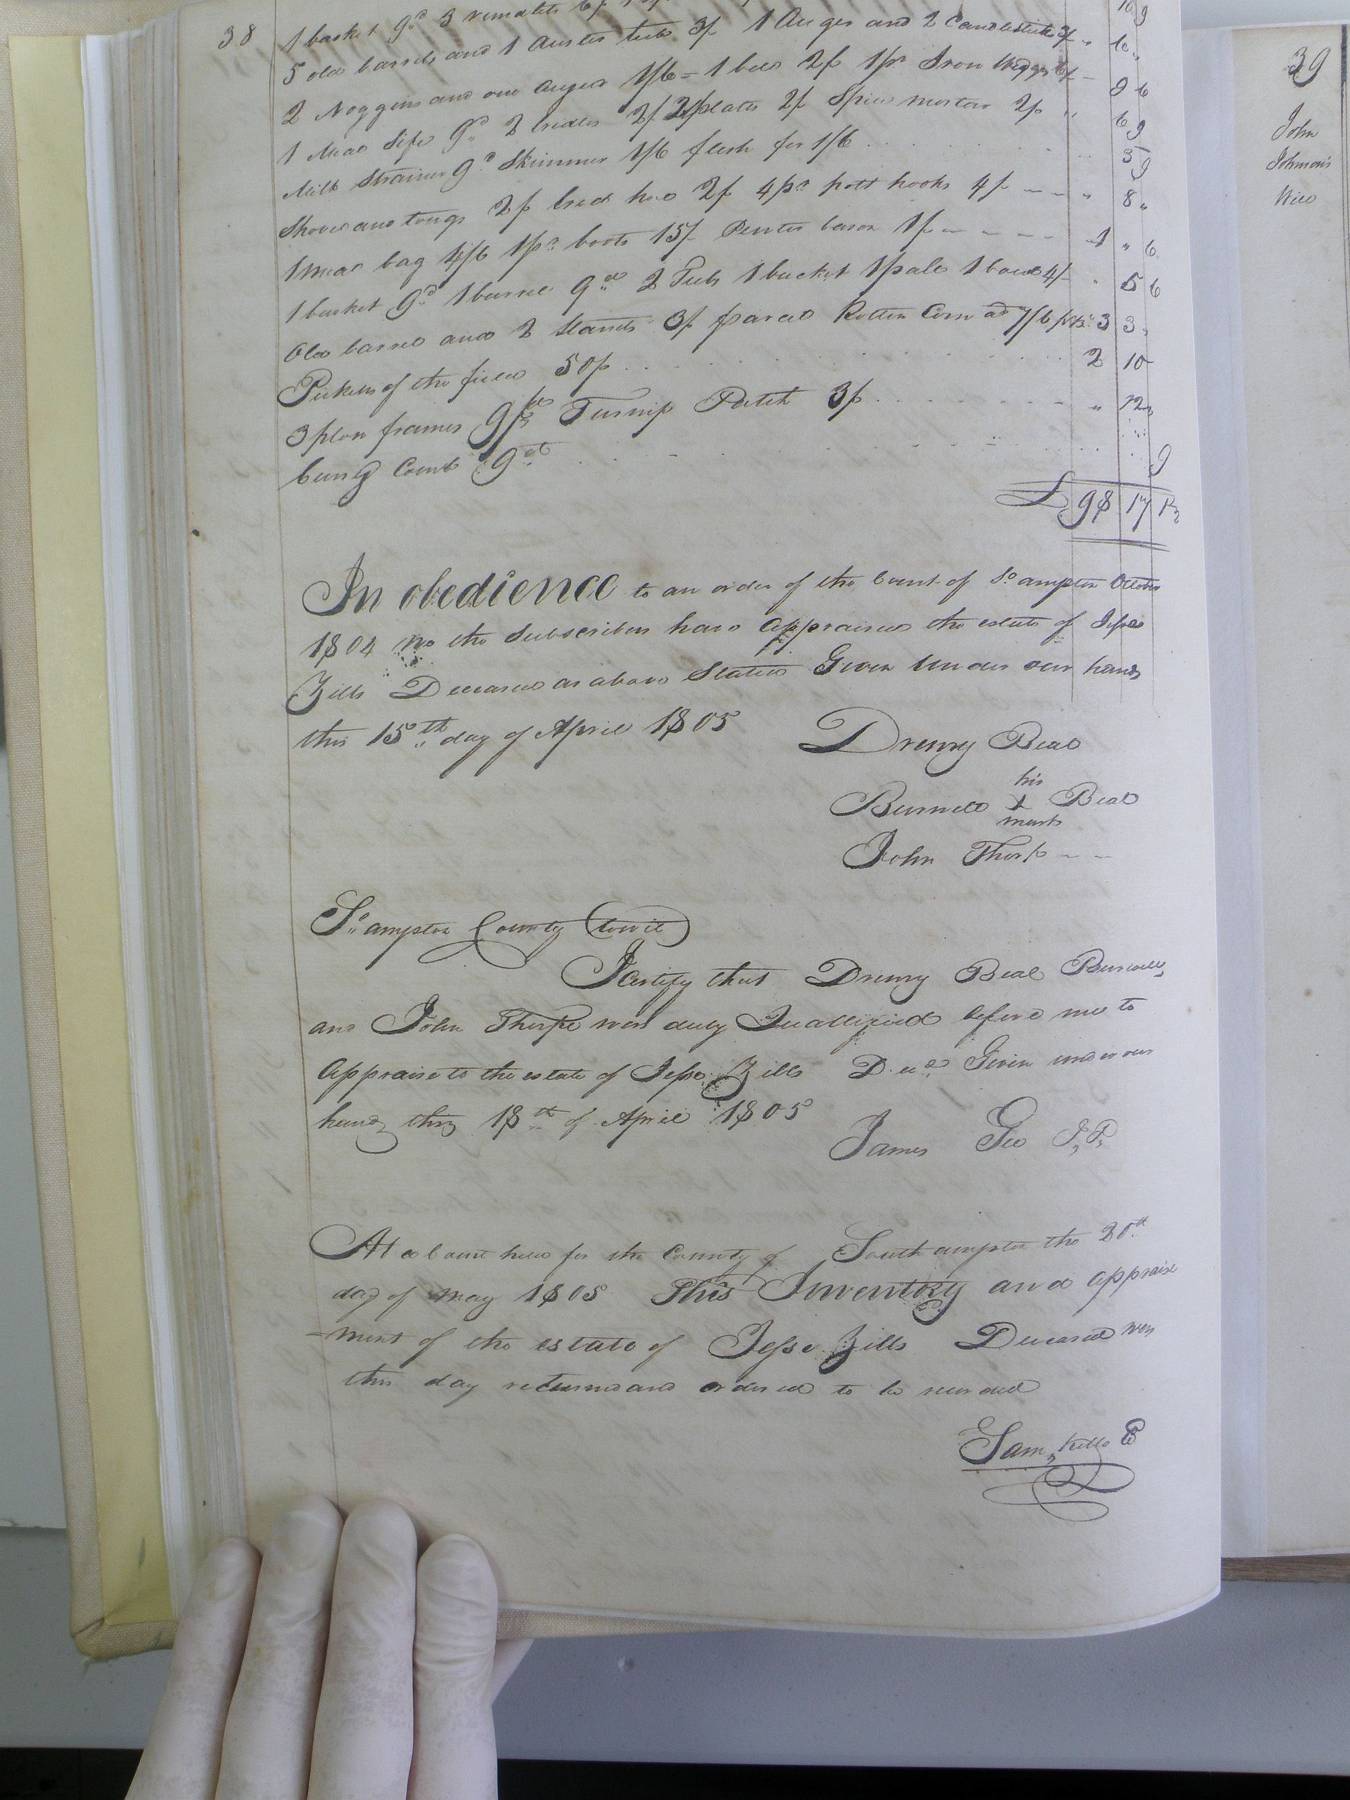 38
1 basket 9d 3
5 old barrels and 1 tub 3/ 1 Auger and 2 Candlesticks 3/ 6
2 Noggins and one auger 1/6 = 1 bell 2/ 1 pr Iron Wedges 6/ 9 6
1 Meal Sife 9d 2 bridles 2/ 2 plates 2/ Spice morter 2/ 6 9
Milk Strainer 9d Skimmer 1/6 flesh for 1/6 3 9
Shovel and tongs 2/ bred hoe 2/ 4 prs pott hooks 4/ 8
1 Meal bag 4/6 1 pr boots 15/ Pewter bason 1/ 1 " 6
1 basket 9d 1 barrel 9d 2 Tubs 1 bucket 1 pale 1 bowl 4/ 5 6
Old barrel and 2 Stands 3/ parcel Rotten Corn at 7/6 3 3
Pickens of the field 50/ 2 10
3 plow frames Turnip Patch 3/ " 12
9d 9
£ 98 17 1½
In obedience to an order of the Court of So ampton October
1804 We the Subscribers have Appraised the estate of Jesse
Zills Deceased as above Stated Given Under our hands
this 15th day of April 1805
Drewry Beal
his
Burwell X Beal
mark
John Thorp
So ampton County (towit)
I Certify that Drewry Beal Burwell
and John Thorpe were duly Quallified before me to
Appraise to the estate of Jesse Zills Decd Given under our
hand this 18th of April 1805
James Gee J.P.
At a Court held for the County of Southampton the 20th
day of May 1805 This Inventory and appraise
-ment of the estate of Jesse Zills Deceased was
this day returned and ordered to be recorded
Saml Kello C
39
John
Johnson's
Will